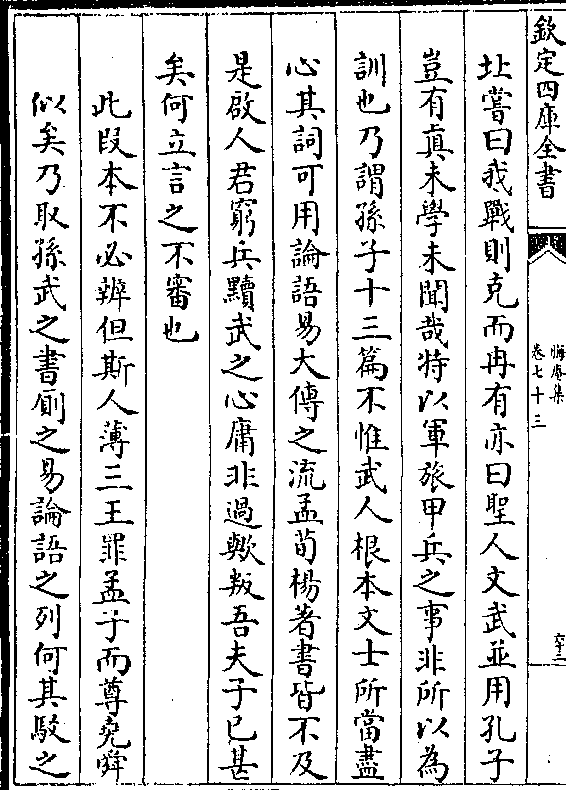 欽定四庫全書
晦庵集
卷七十三
六十二
圵嘗曰我戰則克而冉有亦曰聖人文武並用孔子
豈有真未學未聞哉特以軍旅甲兵之事非所以為
訓也乃謂孫子十三篇不惟武人根本文士所當盡
心其詞可用論語易大傳之流孟荀楊著書皆不及
是啟人君窮兵黷武之心庸非過歟叛吾夫子已甚
矣何立言之不審也
此段本不必辨但斯人薄三王罪孟子而尊堯舜
似矣乃取孫武之書廁之易論語之列何其駁之